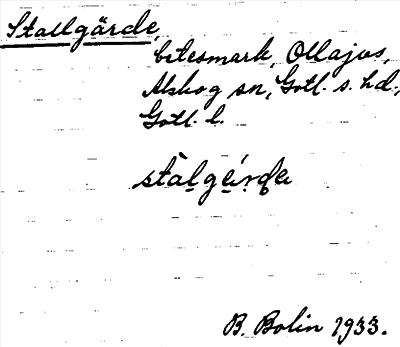 Stallgärde,
betesmark, Ollajvs,
Alskog sn, Gotl. s. hd.,
Gotl. l.
B. Bolin 1933.